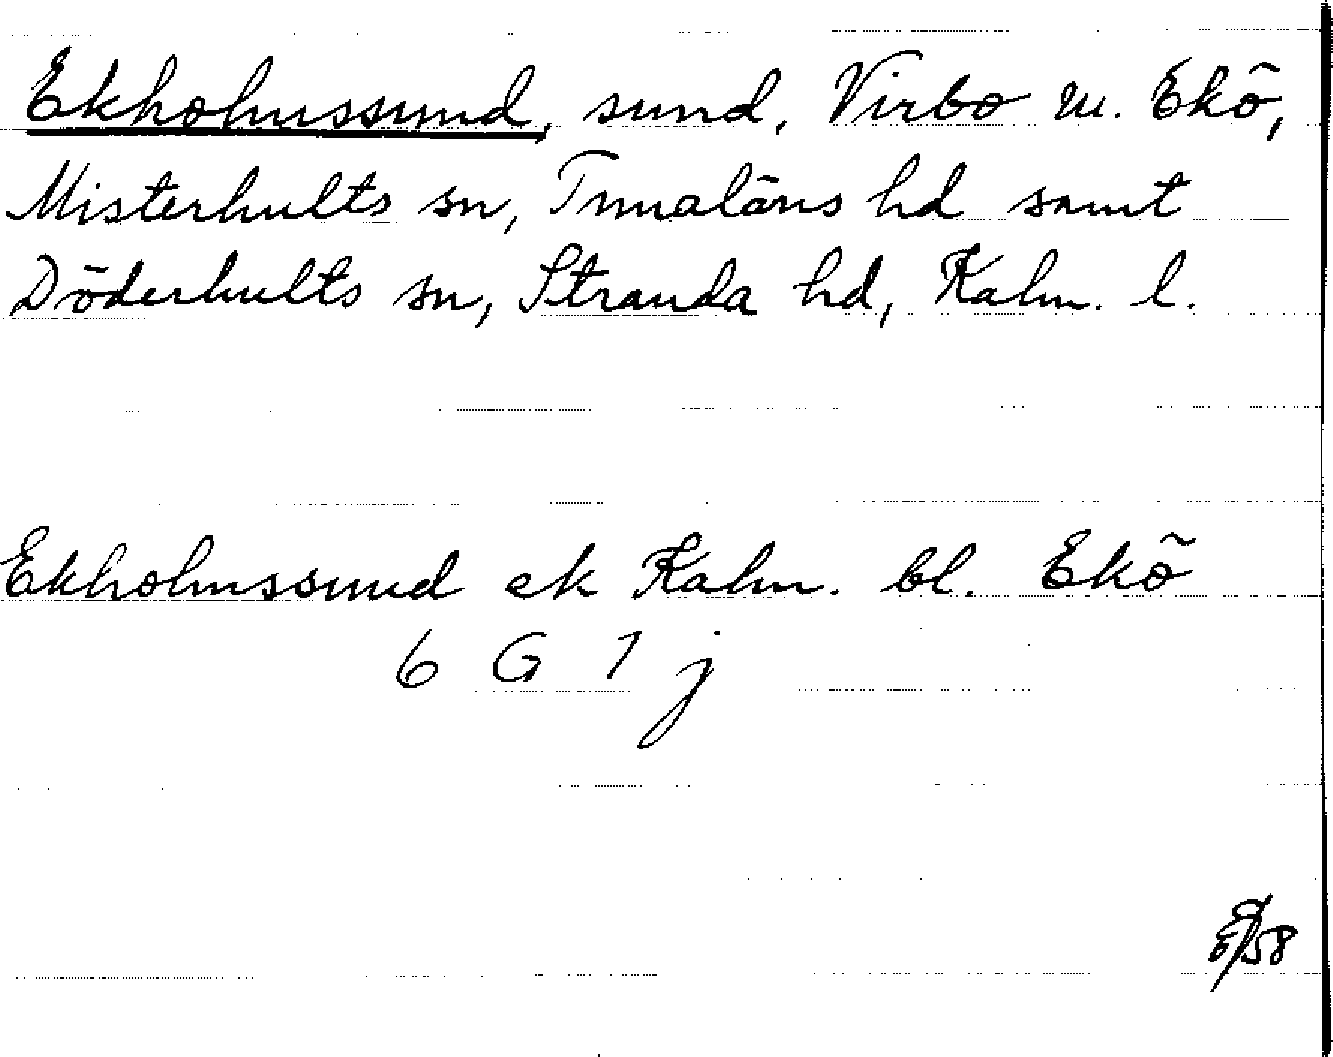 Ekholmssund, sund, Virbo m. Ekö,
Misterhults sn, Tunaläns hd samt
Döderhults sn, Stranda hd, Kalm. l.
Ekholmssund ek Kalm. bl. Ekö
6 G 1 j